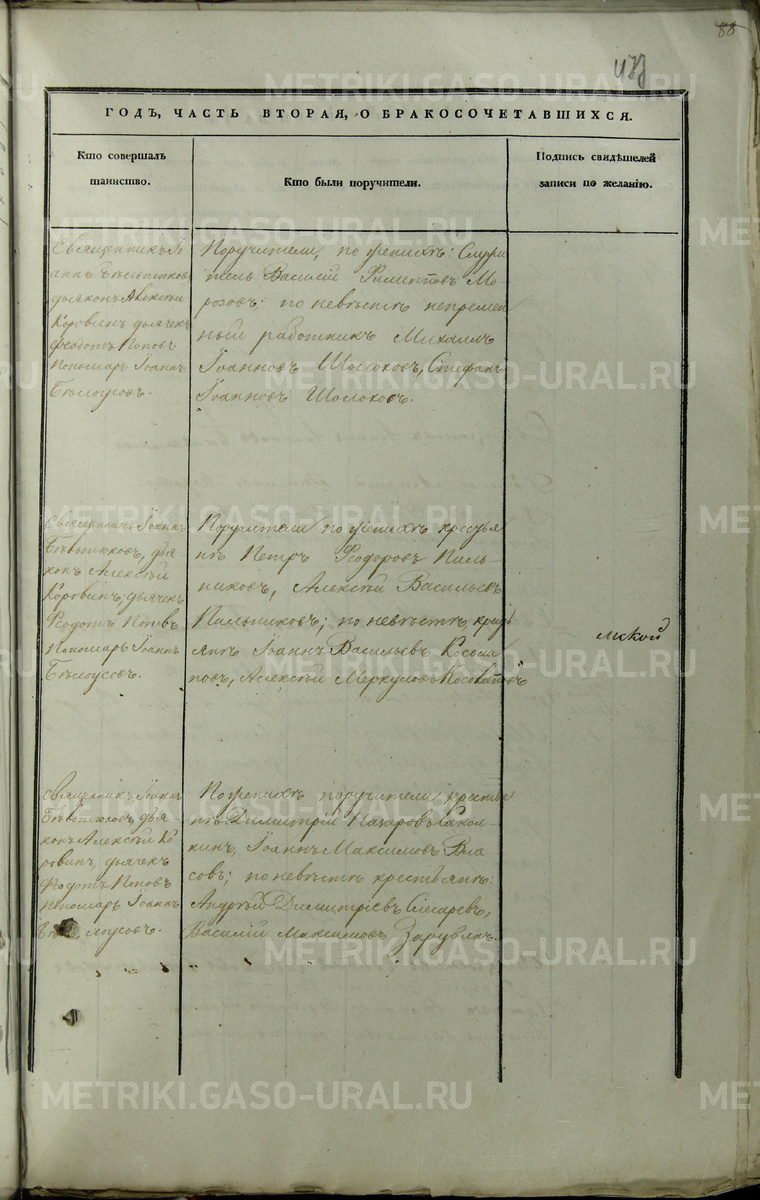 88
ГОДЪ, ЧАСТЬ ВТОРАЯ, О БРАКОСОЧЕТАВШИХСЯ.
Кто совершалъ
таинство.
Кто были поручители.
Подпись свидѣтелей
записи по желанію.
Священникъ Іо
аннъ
дьяконъ Алексѣй
Коровинъ дьячекъ
Ѳеодотъ Поповъ
Пономарь Іоаннъ
Бѣлоусовъ.
Поручители, по женихѣ: Служи
тель Василій Филипповъ Мо
розовъ: по невѣстѣ непремѣн
ный работникъ Михаилъ
Іоанновъ Шолоховъ, Стефанъ
Іоанновъ Шолоховъ.
Священникъ Іоаннъ
дья
конъ Алексѣй
Коровинъ, дьячекъ
Ѳеодотъ Поповъ
Пономарь Іоаннъ
Бѣлоусовъ.
Поручители по женихѣ кресья
нѣ Петръ Ѳеодоровъ Пиль
никовъ, Алексѣй Васильевъ
Пильниковъ; по невѣстѣ кресь
янѣ Іоаннъ Васильевъ Косола
повъ, Алексѣй Меркуловъ Косолаповъ
мской
Священникъ Іоаннъ
дья
конъ Алексѣй Ко
ровинъ, дьячекъ
Ѳеодотъ Поповъ
Пономарь Іоаннъ
Бѣлоусовъ.
По женихѣ поручители крестья
нѣ: Димитрій Назаровъ
кинъ, Іоаннъ Максимовъ Вла
совъ; по невѣстѣ крестьянѣ:
Андрей Димитріевъ Слесаревъ,
Василій Максимовъ Зарубинъ.
METRIKI.GASO-URAL.RU